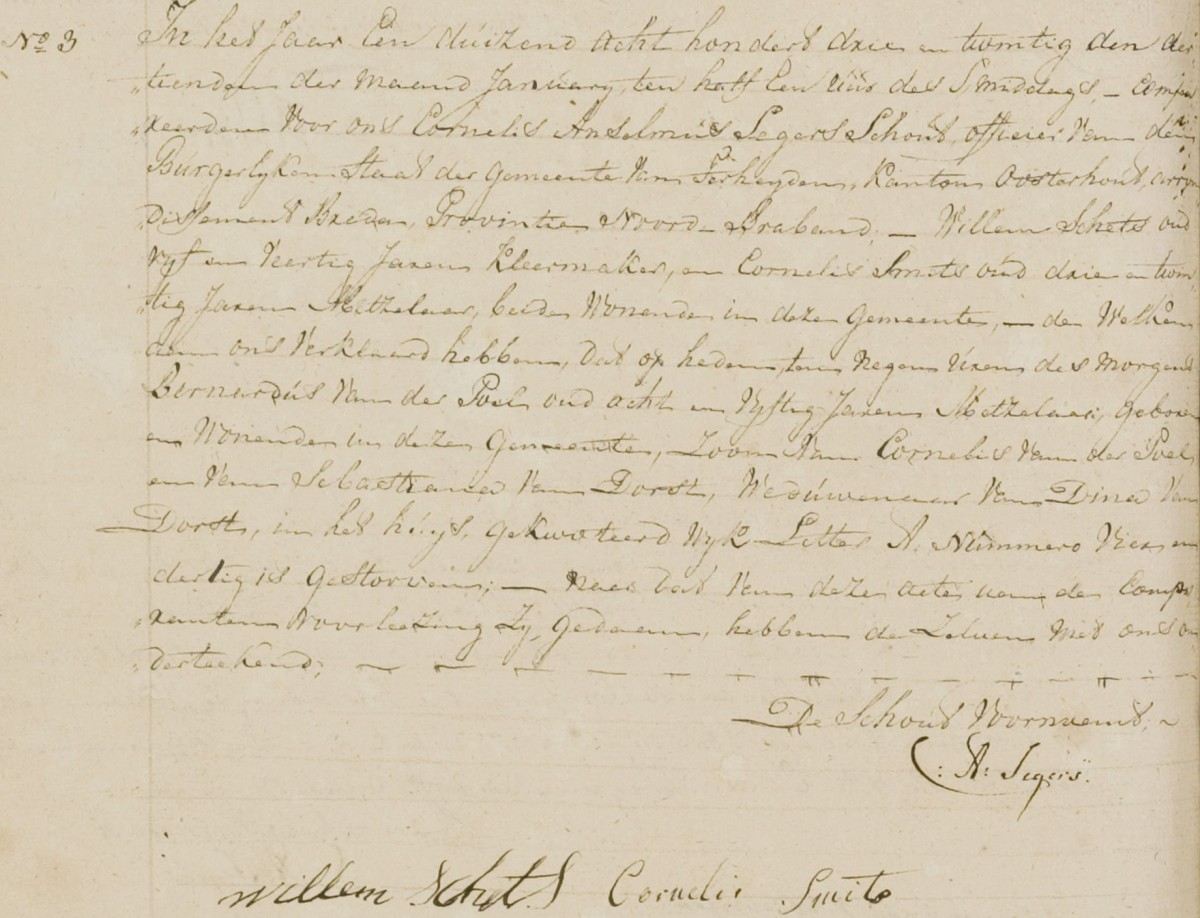 No 3 In het Jaar Een duizend acht hondert drie en twintig den der
"tienden der maand January, ten half Een uur des Smiddags, – Compa
"reerden Voor ons Cornelis Anselmus Segers Schout, officier Van den
Burgerlyken Staat der Gemeente Van Terheyden, Kanton Oosterhout, arron
"Dissement Breda, Provintie Noord-Braband; – Willem Schets oud
Vyf en Veertig Jaren Kleermaker, en Cornelis Smits oud drie en twin
"tig Jaren Metzelaar, beide Wonende in deze Gemeente, – de Welken
aan ons Verklaard hebben, dat op heden, ten negen uren des morgens
Bernardus Van der Poel oud acht en Vyftig Jaren Metzelaar, geboren
en Wonende in deze Gemeente, Zoon Van Cornelis Van der Poel
en Van Sebastiana Van Dorst, Weduwenaar Van Dina Van
Dorst, in het huys, gekwoteerd Wyk Letter A. Nummero Vier en
dertig is Gestorven; – naar dat Van deze acte aan de Compa
"ranten Voorleezing Zy Gedaan, hebben de Zelven met ons on
"derteekend;
De Schout Voornoemt;
C: A: Segers.
Willem Schets Cornelis Smits